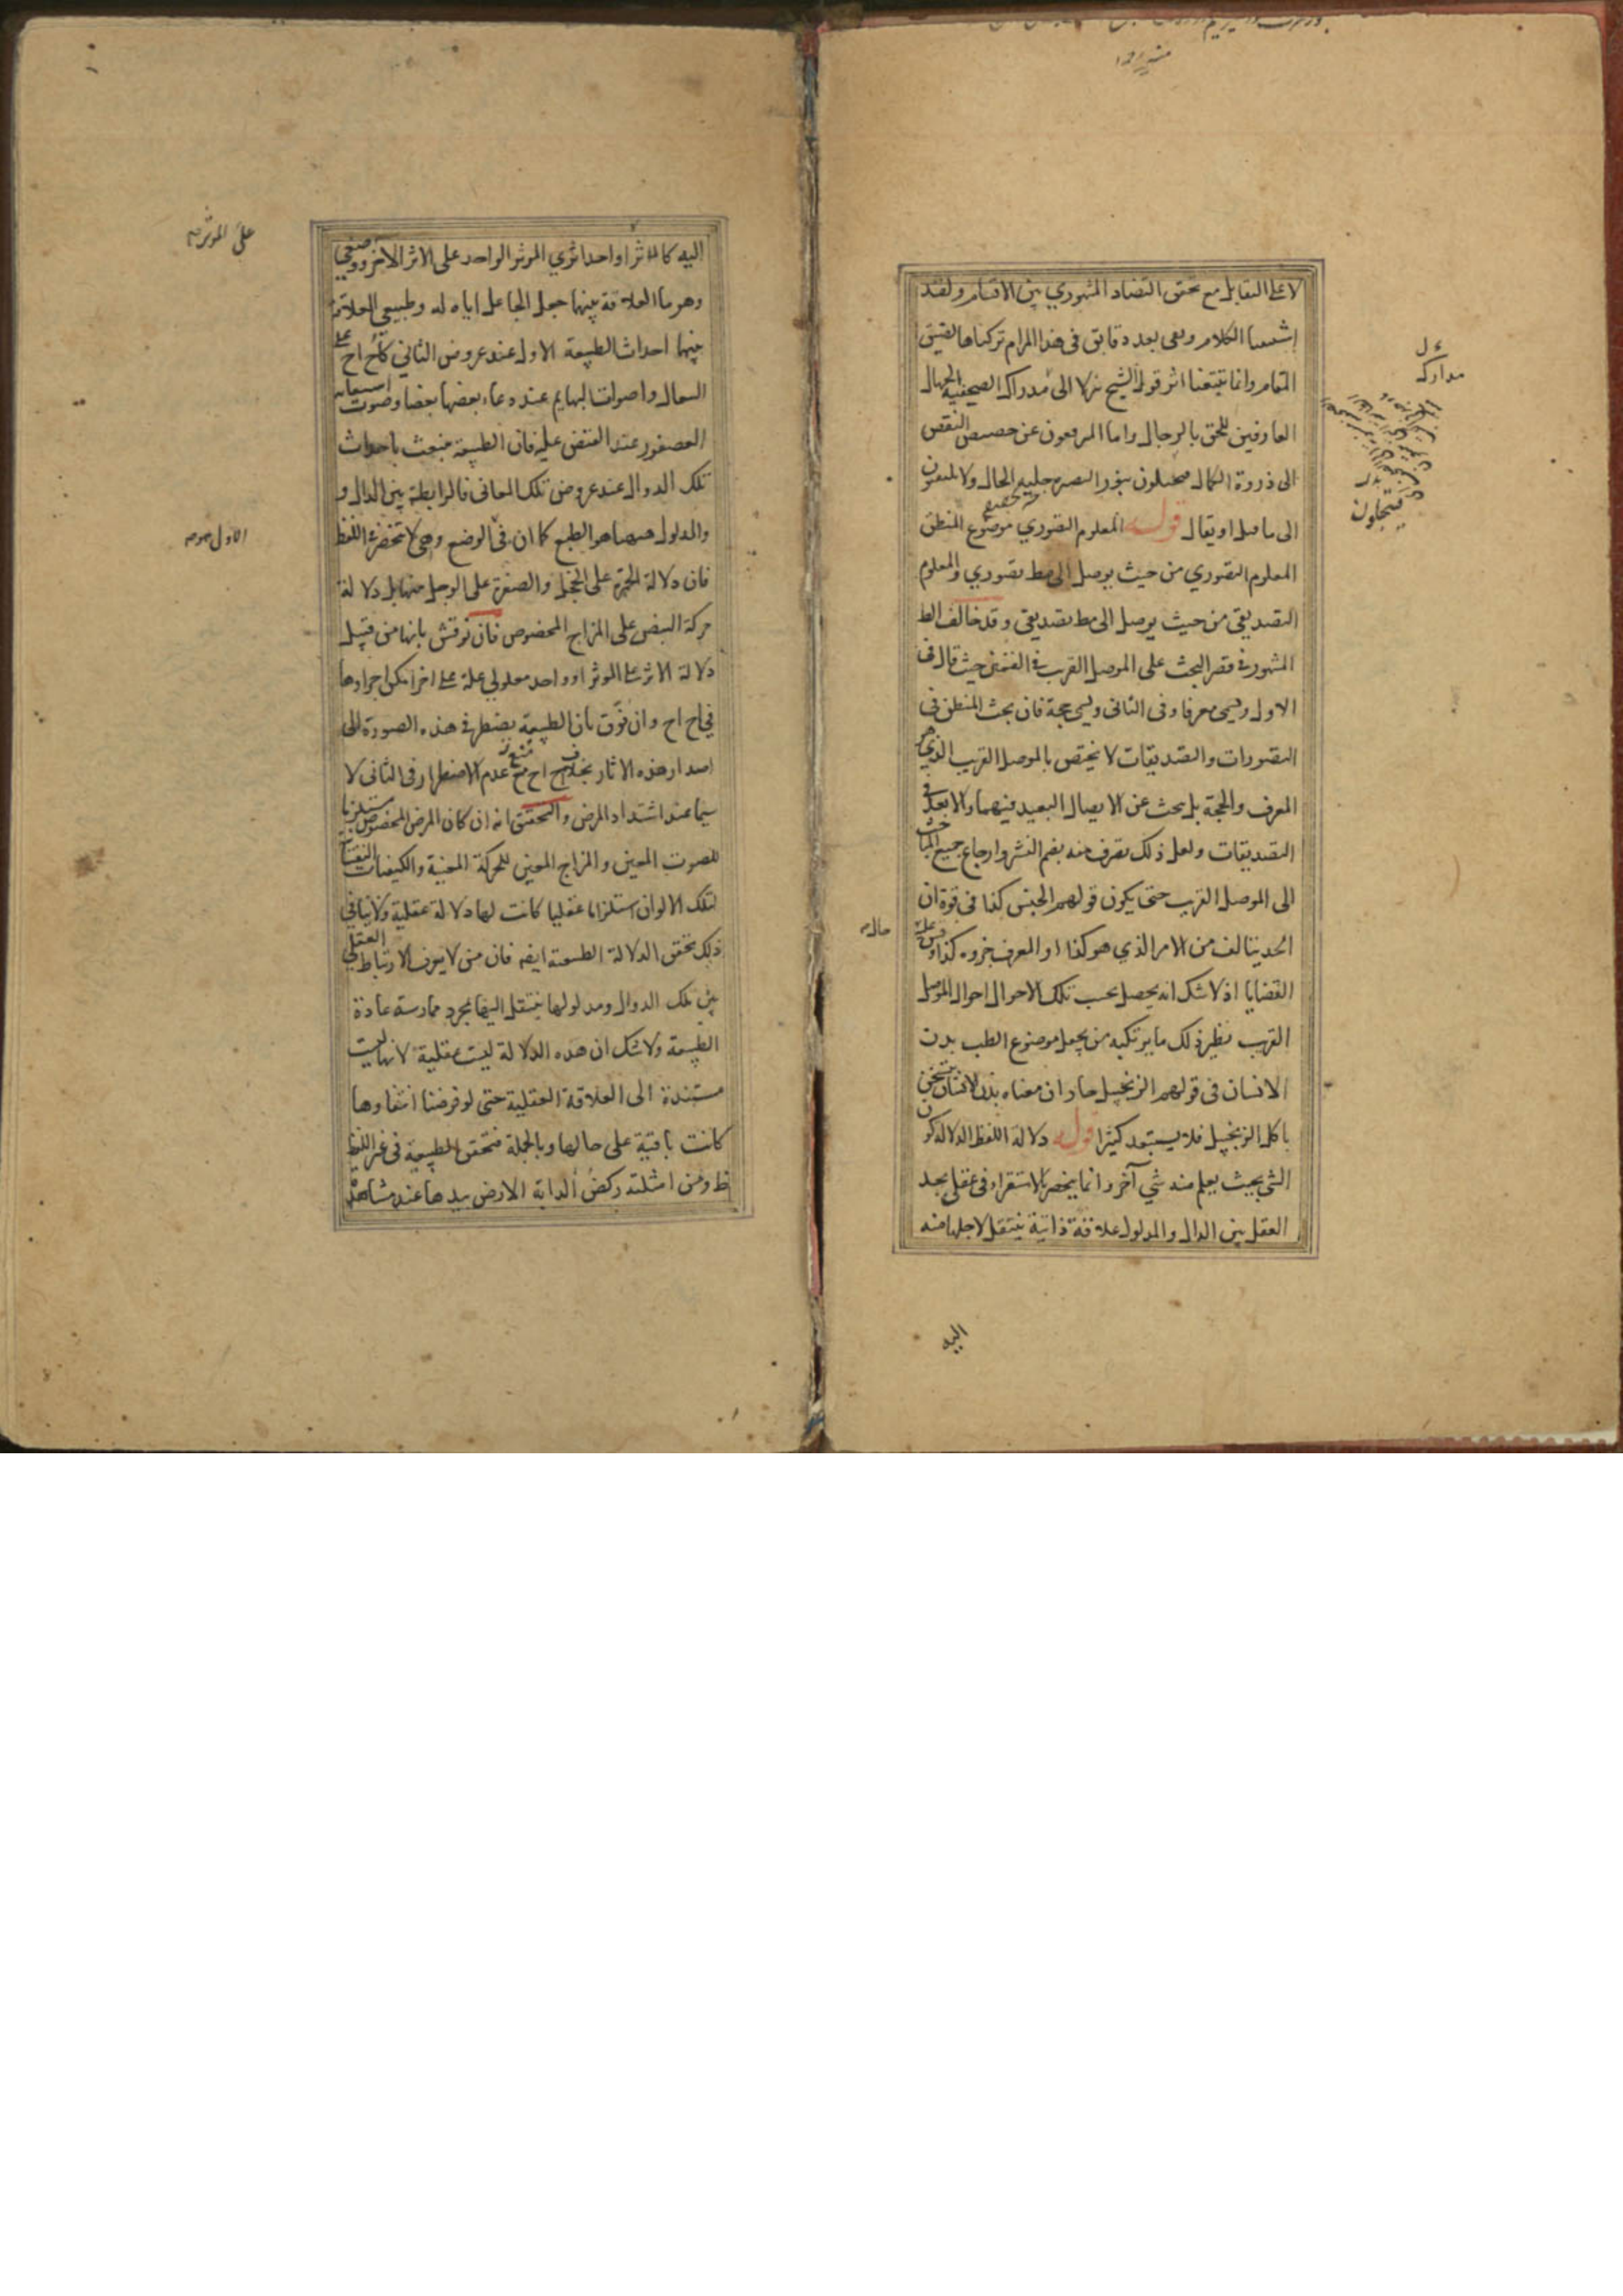 لا على التقابل مع تحقق التضاد المشهوري بين الاقسام ولقد
اشبعنا الكلام وبقى بعد دقايق فى هذا المرام تركناها لضيق
المقام وانما تتبعنا اثر قول الشيخ نزلا الى مدارك الصحفية الجهال
العارفين للحق بالرجال واما المرفعون عن حضيض النقص
الى ذروة الكمال بنور البصيرة جلية الحال ولا يلتفتون
الى ما قيل او يقال قوله المعلوم التصوري موضوع المنطق
المعلوم التصوري من حيث يوصل الى مط تصوري والمعلوم
التصديقي من حيث يوصل الى مط تصديقي وقد خالف المط
المشهور فى قصر البحث على الموصل القريب فى القسمين حيث قال فى
الاول ويسمى معرفا وفى الثانى ويسمى حجة فان بحث المنطق فى
التصورات والتصديقات لا يختص بالموصل القريب الذي هو
المعرف والحجة بل يبحث عن الايصال البعيد فيهما والابعد فى
التصديقات ولعل ذلك تصرف منه بضم النشر وارجاع جميع المباحث
الى الموصل القريب حتى يكون قولهم الجنس كذا فى قوة ان
الحد يتالف من الامر الذي هو كذا او المعرف جزوه كذا وقس عليه
القضايا اذ لا شك انه يحصل بحسب تلك الاحوال احوال الموصل
القريب نظير ذلك ما يرتكبه من يجعل موضوع الطب بدن
الانسان فى قولهم الزنجبيل حار ان معناه بدن الانسان يتسخن
باكل الزنجبيل فلا يستبعد كثيرا قوله دلالة اللفظ الدلالة كون
الشى بحيث يعلم منه شي آخر وانما ينحصر بالاستقراء فى عقلى يجد
العقل بين الدال والمدلول علاقة ذاتية ينتقل لاجلها منه
اليه
مدارك
فيتجلون
حال
على المؤثر
الاول
اليه كالاثر او احد اثري الموثر الواحد على الاثر الاخر ووضعي
وهو ما العلاقة بينهما جعل الجاعل اياه له وطبيعي العلاقة
بينهما احداث الطبيعة الاول عند عروض الثاني كأح اح على
السعال واصوات البهايم عند دعاء بعضها بعضا وصوت استغاثة
العصفور عند القبض عليه فان الطبيعة تنبعث باحداث
تلك الدوال عند عروض تلك المعانى فالرابطة بين الدال و
والمدلول ههنا هو الطبع كما ان فى الوضع وهى لا تنحصر فى اللفظ
فان دلالة الحمرة على الخجل والصفرة على الوجل منها بل دلالة
حركة النبض على المزاج المخصوص فان نوقش بانها من قبيل
دلالة الاثر على الموثر او واحد معلولي علة على اخر امكن اجراوها
في اح اح وان فرق بان الطبيعة يضطر فى هذه الصورة الى
اصدار هذه الاثار بخلاف اح اح منع عدم الاضطرار فى الثانى لا
سيما عند اشتداد المرض والتحقيق انه ان كان المرض المخصوص مستلزما
للصوت المعين والمزاج المعين للحركة المعينة والكيفيات النفسانية
لتلك الالوان استلزاما عقليا كانت لها دلالة عقلية ولا ينافى
ذلك تحقق الدلالة الطبيعية ايضه فان من لا يعرف الارتباط العقلي
بين تلك الدوال ومدلولها ينتقل اليها بمجرد ممارسة عادة
الطبيعة ولا شك ان هذه الدلالة ليست عقلية لانها ليست
مستندة الى العلاقة العقلية حتى لو فرضنا انتفاوها
كانت باقية على حالها وبالجملة فتحقق الطبيعية فى غير اللفظ
ظ ومن امثلته ركض الدابة الارض بيدها عند مشاهدة